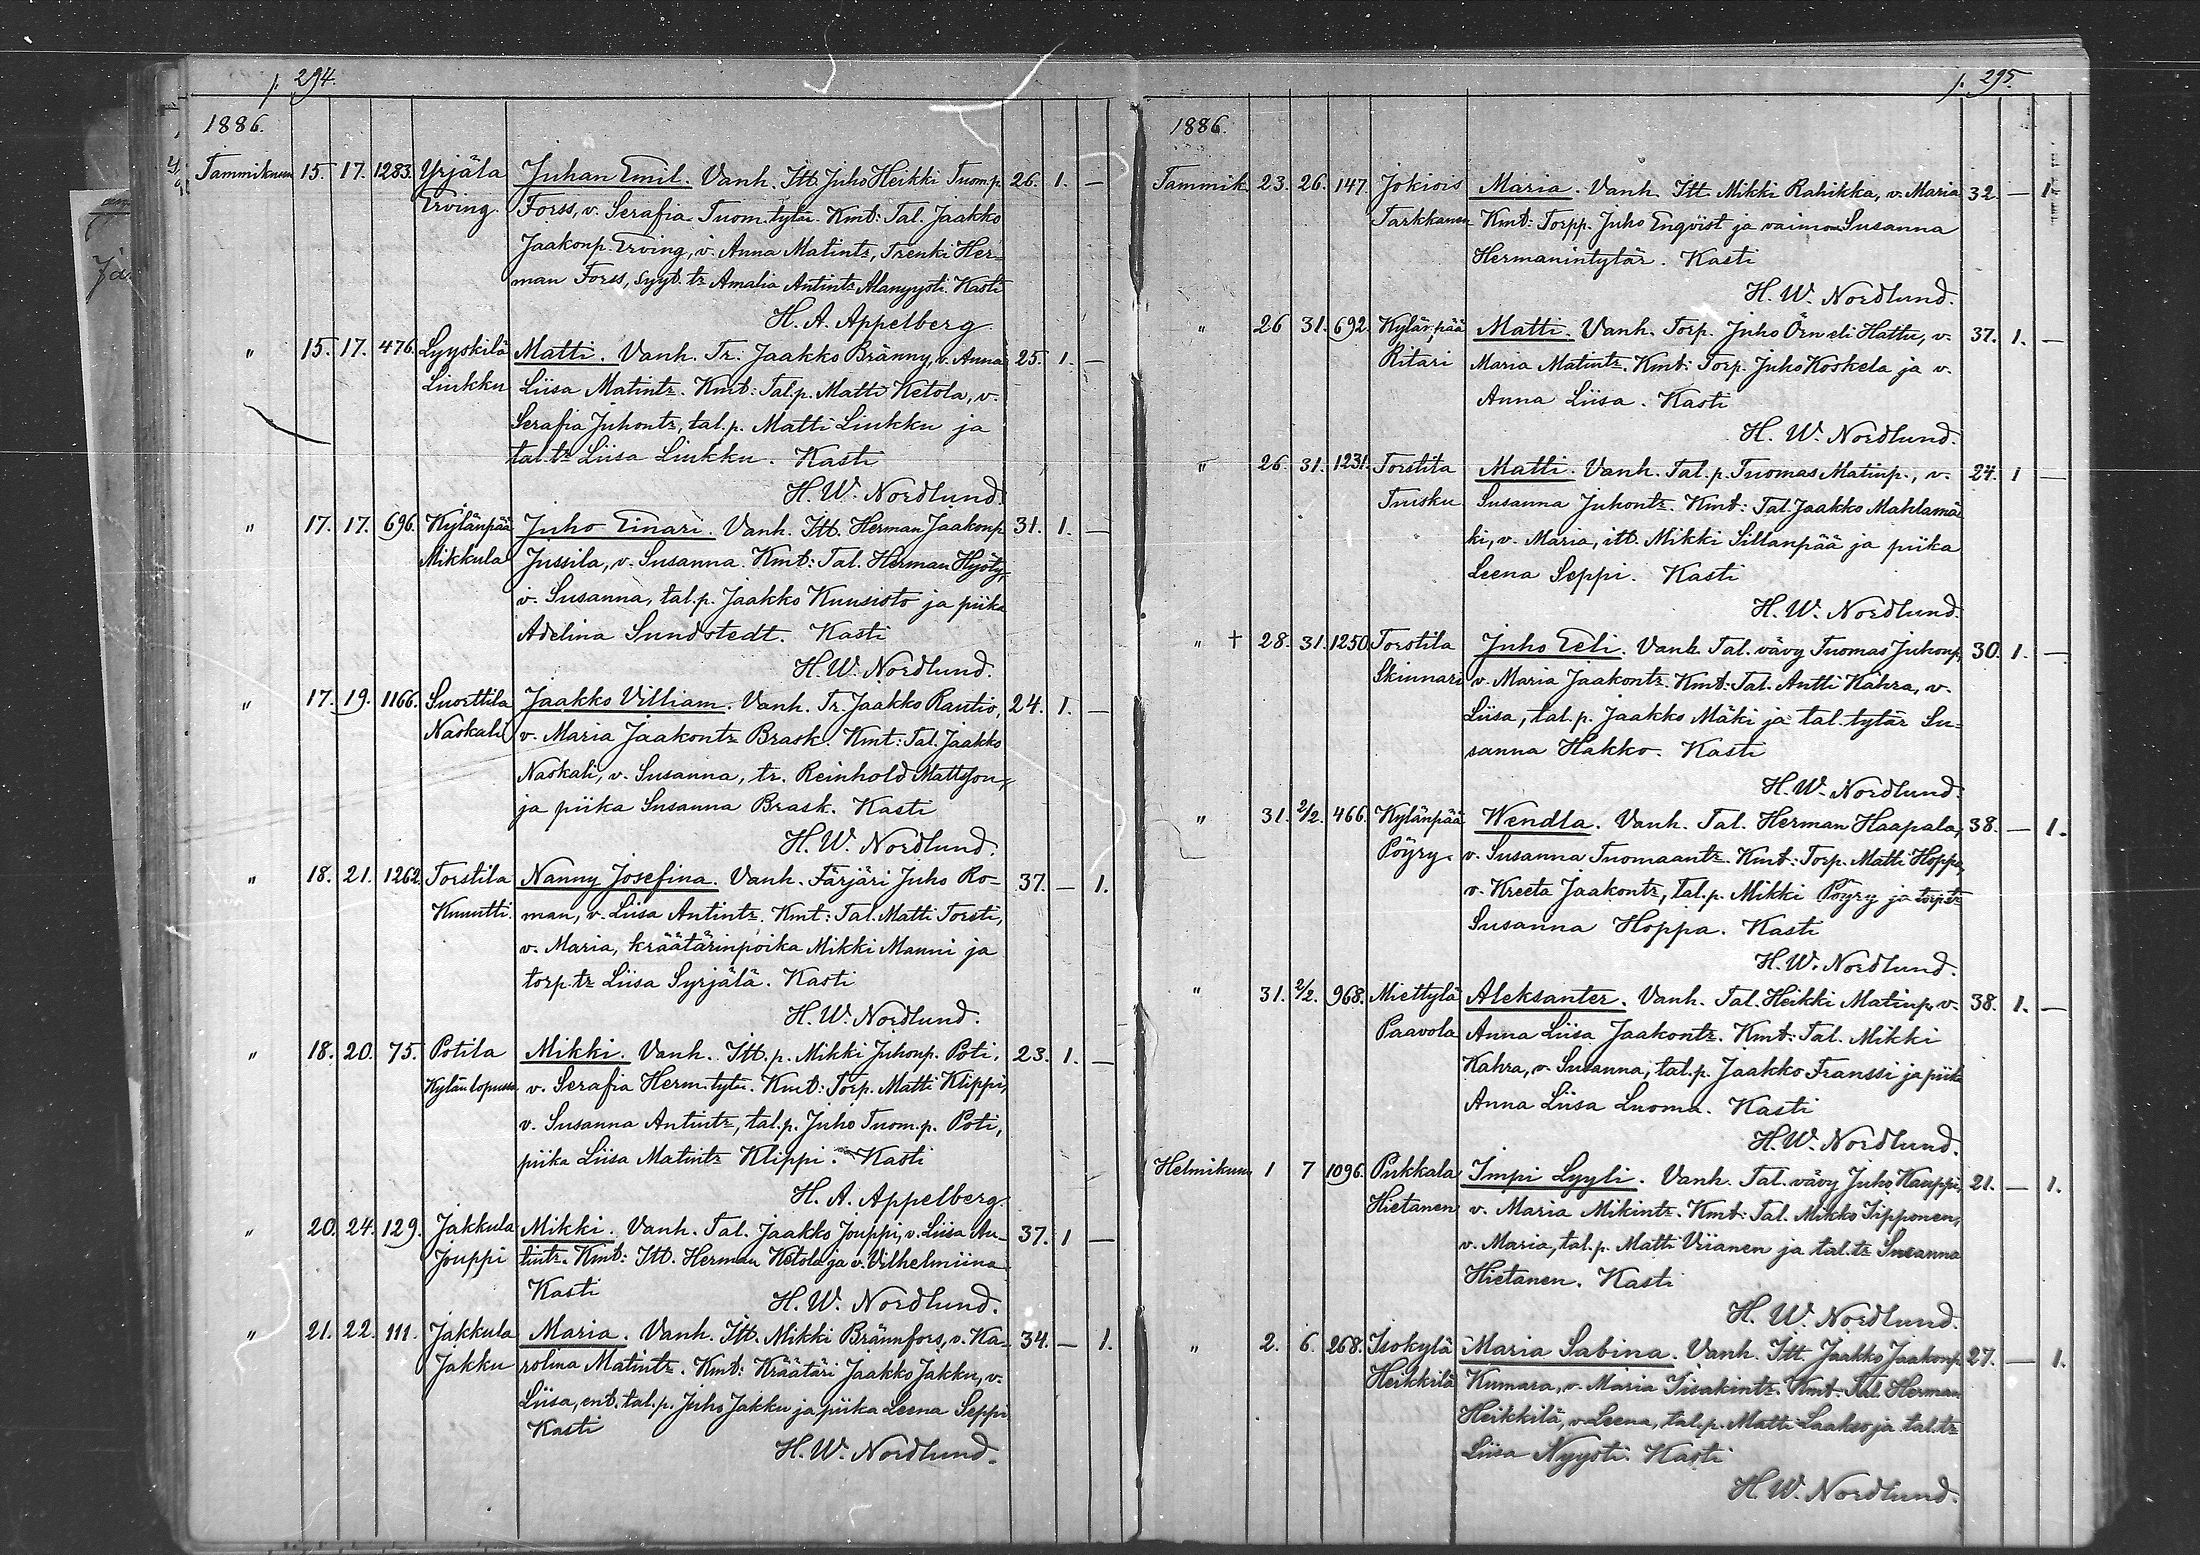 p. 294.
1886.
Tammikuun 15. 17. 1283. Yrjälä Juhan Emil. Vanh. Itt. Juho Heikki Tuomp. 26. 1. —
Erving. Forss, v. Serafia Tuom. tytär. Kmt: Tal. Jaakko
Jaakonp. Erving, v. Anna Matintr, Trenki Her-
man Forss, syyt. tr Amalia Antintr Alanyysti. Kasti
H. A. Appelberg
" 15. 17. 476. Lyyskilä Matti. Vanh. Tr. Jaakko Bränny, v. Anna 25. 1. —
Liukku Liisa Matintr. Kmt: Tal.p. Matti Ketola, v.
Serafia Juhontr, tal.p. Matti Liukku ja
tal.tr Liisa Liukku. Kasti
H. W. Nordlund.
" 17. 17. 696. Kylänpää Juho Einari. Vanh. Itt. Herman Jaakonp. 31. 1. —
Mikkula Jussila, v. Susanna. Kmt: Tal. Herman Hyöty,
v. Susanna, tal.p. Jaakko Kuusisto ja piika
Adelina Sundstedt. Kasti
H. W. Nordlund.
" 17. 19. 1166. Suorttila Jaakko Villiam. Vanh. Tr. Jaakko Rautio, 24. 1. —
Naskali v. Maria Jaakontr Brask. Kmt: Tal. Jaakko
Naskali, v. Susanna, tr. Reinhold Mattsson,
ja piika Susanna Brask. Kasti
H. W. Nordlund.
" 18. 21. 1262. Torstila Nanny Josefina. Vanh. Färjäri Juho Ro- 37. — 1.
Knuutti. man, v. Liisa Antintr. Kmt: Tal. Matti Torsti,
v. Maria, kräätärinpoika Mikki Manni ja
torp.tr Liisa Syrjälä. Kasti
H. W. Nordlund.
" 18. 20. 75. Potila Mikki. Vanh. Itt. p. Mikki Juhonp. Poti, 23. 1. —
Kylän lopussa v. Serafia Herm. tytr. Kmt: Torp. Matti Klippi,
v. Susanna Antintr, tal.p. Juho Tuom.p. Poti,
piika Liisa Matintr Klippi. Kasti
H. A. Appelberg.
" 20. 24. 129. Jakkula Mikki. Vanh. Tal. Jaakko Jouppi, v. Liisa An- 37. 1 —
Jouppi tintr. Kmt: Itt. Herman Ketola ja v. Vilhelmiina
Kasti H. W. Nordlund.
" 21. 22. 111. Jakkula Maria. Vanh. Itt. Mikki Brännfors, v. Ka- 34. — 1.
Jakku rolina Matintr. Kmt: Kräätäri Jaakko Jakku, v.
Liisa, ent. tal.p. Juho Jakku ja piika Leena Seppi
Kasti
H. W. Nordlund.
p. 295.
1886.
Tammik. 23. 26. 147. Jokiois Maria. Vanh. Itt Mikki Rahikka, v. Maria 32. — 1.
Tarkkanen Kmt: Torpp. Juho Enqvist ja vaimo Susanna
Hermanintytär. Kasti
H. W. Nordlund.
" 26 31. 692. Kylänpää Matti. Vanh. Torp. Juho Örn eli Hattu, v. 37. 1. —
Ritari Maria Matintr. Kmt: Torp. Juho Koskela ja v.
Anna Liisa. Kasti
H. W. Nordlund.
" 26. 31. 1231. Torstila Matti. Vanh. Tal. p. Tuomas Matinp., v. 24. 1 —
Tuisku Susanna Juhontr. Kmt: Tal. Jaakko Mahlamä-
ki, v. Maria, itt. Mikki Sillanpää ja piika
Leena Seppi. Kasti
H. W. Nordlund.
" † 28. 31. 1250. Torstila Juho Eeli. Vanh. Tal. vävy Tuomas Juhonp, 30. 1. —
Skinnari v. Maria Jaakontr. Kmt: Tal. Antti Kahra, v.
Liisa, tal.p. Jaakko Mäki ja tal.tytär Su-
sanna Hakko. Kasti
H. W. Nordlund.
" 31. 2/2. 466. Kylänpää Wendla. Vanh. Tal. Herman Haapala, 38. — 1.
Pöyry. v. Susanna Tuomaantr. Kmt: Torp. Matti Hoppa,
v. Kreeta Jaakontr, tal.p. Mikki Pöyry ja torp.tr
Susanna Hoppa. Kasti
H. W. Nordlund.
" 31. 2/2. 968. Miettylä Aleksanter. Vanh. Tal. Heikki Matinp. v. 38. 1. —
Paavola Anna Liisa Jaakontr. Kmt: Tal. Mikki
Kahra, v. Susanna, tal.p. Jaakko Franssi ja piik
Anna Liisa Luoma. Kasti
H. W. Nordlund.
Helmikuun 1 7 1096. Pukkala Impi Lyyli. Vanh. Tal. vävy Juho Kauppi, 21. — 1.
Hietanen v. Maria Mikintr. Kmt: Tal. Mikko Iipponen,
v. Maria, tal.p. Matti Viianen ja tal.tr Susanna
Hietanen. Kasti
H. W. Nordlund.
" 2. 6. 268. Isokylä Maria Sabina. Vanh. Itt Jaakko Jaakonp 27. — 1.
Heikkilä Kumara, v. Maria Iisakintr. Kmt. Tal. Herman
Heikkilä, v. Leena, tal.p. Matti Laakso ja tal.tr
Liisa Nyysti. Kasti
H. W. Nordlund.